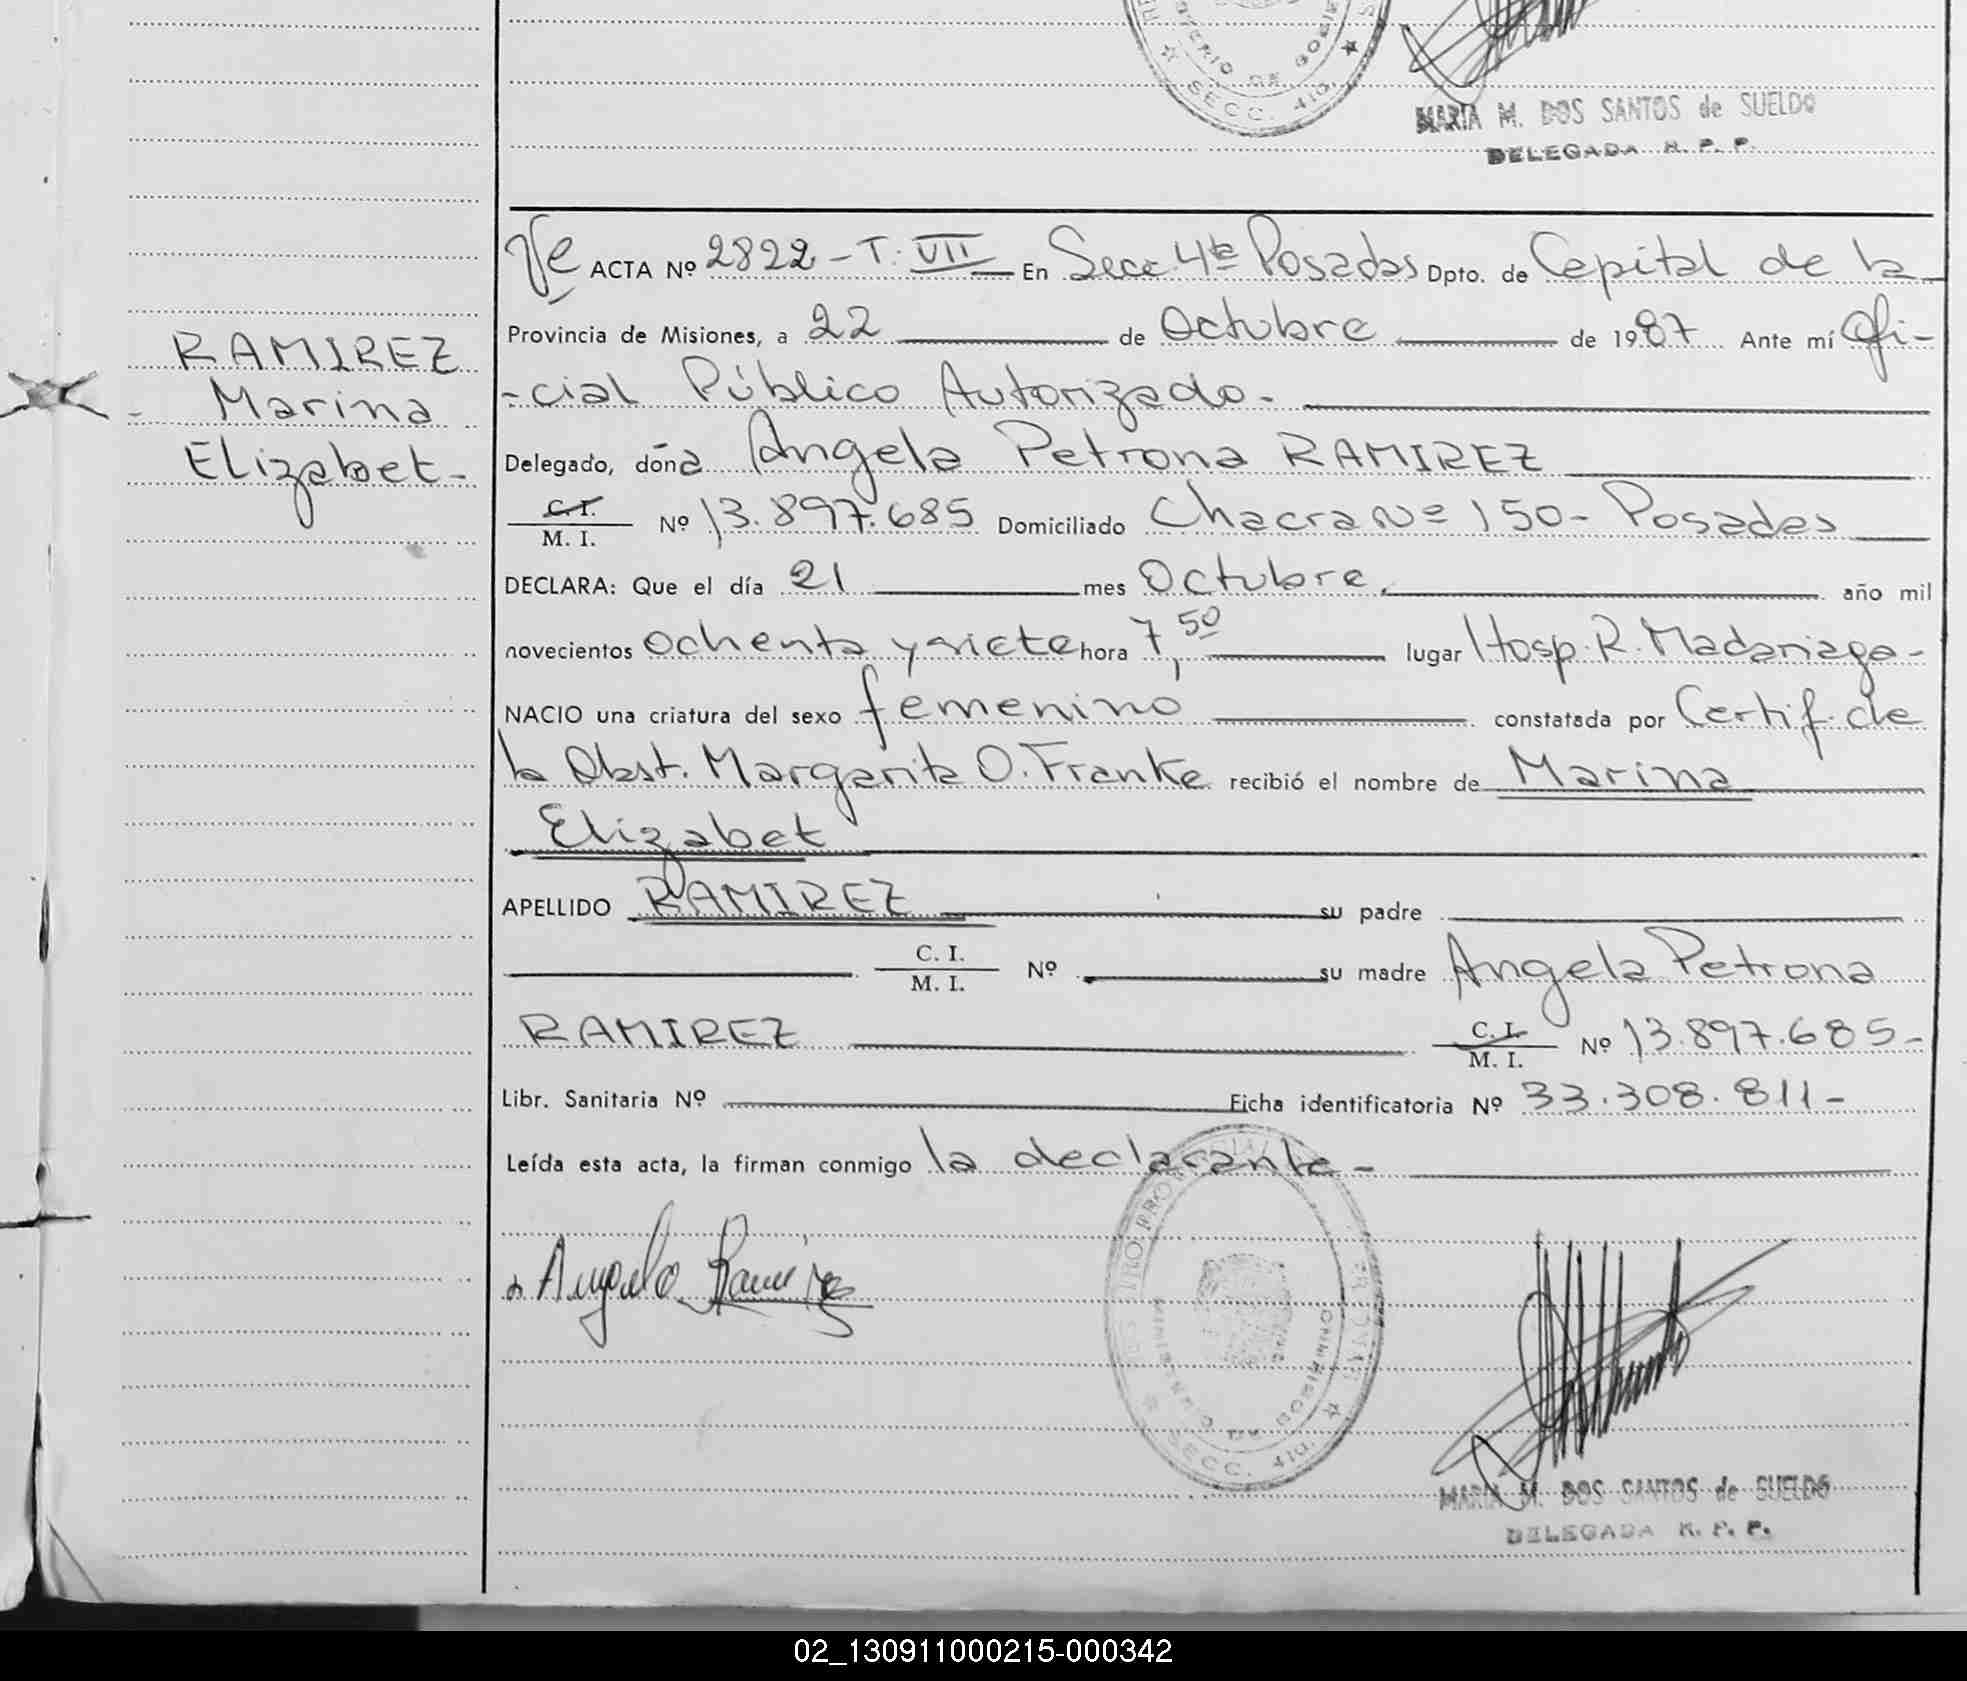 MINISTERIO DE GOBIE
SECC. 4TA.
MARIA M. DOS SANTOS de SUELDO
DELEGADA R. P. P.
RAMIREZ
Marina
Elizabet-
ACTA Nº 2822 - T. VII En Secc 4ta Posadas Dpto. de Capital de la
Provincia de Misiones, a 22 de Octubre de 1987 Ante mí Ofi-
-cial Público Autorizado-
Delegado, doña Angela Petrona RAMIREZ
C. I.
M. I. Nº 13.897.685 Domiciliado Chacra Nº 150- Posadas
DECLARA: Que el día 21 mes Octubre año mil
novecientos ochenta y siete hora 7,50 lugar Hosp. R. Madariaga-
NACIO una criatura del sexo femenino constatada por Certif. de
la Obst. Margarita O. Franke recibió el nombre de Marina
Elizabet
APELLIDO RAMIREZ su padre
C. I.
M. I. Nº su madre Angela Petrona
RAMIREZ C. I.
M. I. Nº 13.897.685-
Libr. Sanitaria Nº Ficha identificatoria Nº 33.308.811-
Leída esta acta, la firman conmigo la declarante-
Angela Ramirez
MINISTERIO DE GOBIERNO
SECC. 4TA.
MARIA M. DOS SANTOS de SUELDO
DELEGADA R. P. P.
02_130911000215-000342